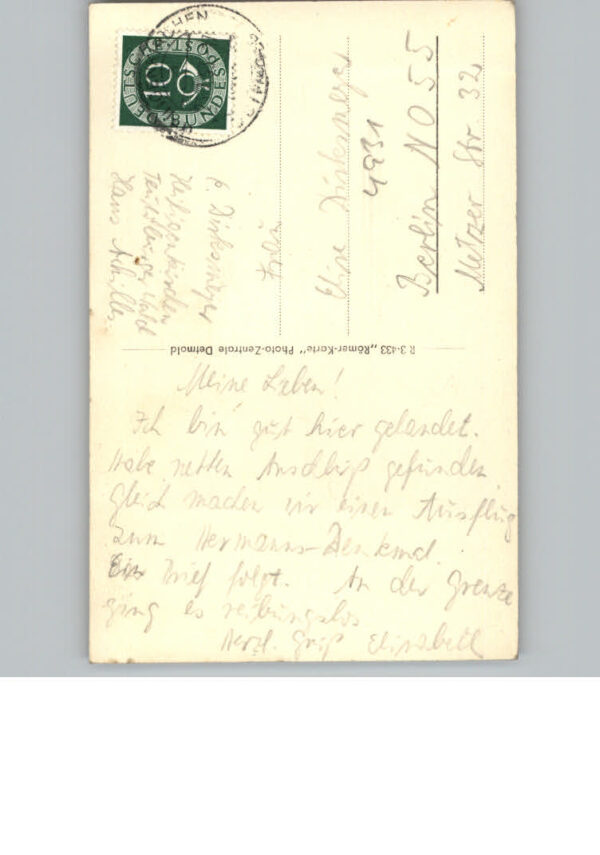 DEUTSCHE · POST
10
BUNDES
b. Dirksmeyer
Heiligenkirchen
Teutoburger Wald
Haus Achilles
Elise Dirksmeyer
4931
Berlin NO 55
Metzer Str. 32
R 3-433 „Römer-Karte" Photo-Zentrale Detmold
Meine Lieben!
Ich bin gut hier gelandet.
Habe netten Anschluß gefunden
gleich machen wir einen Ausflug
zum Hermanns-Denkmal.
Ein Brief folgt. An der Grenze
ging es reibungslos
Herzl. Gruß Elisabeth